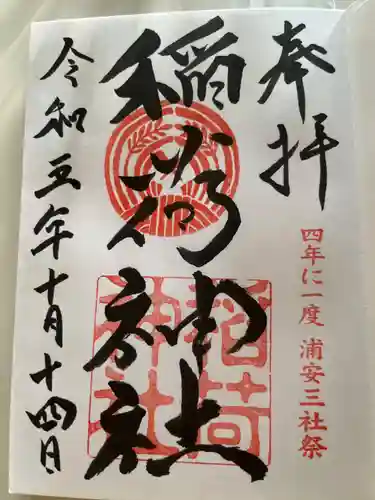 奉拝
四年に一度 浦安三社祭
稲荷神社
稲荷
神社
令和五年十月十四日